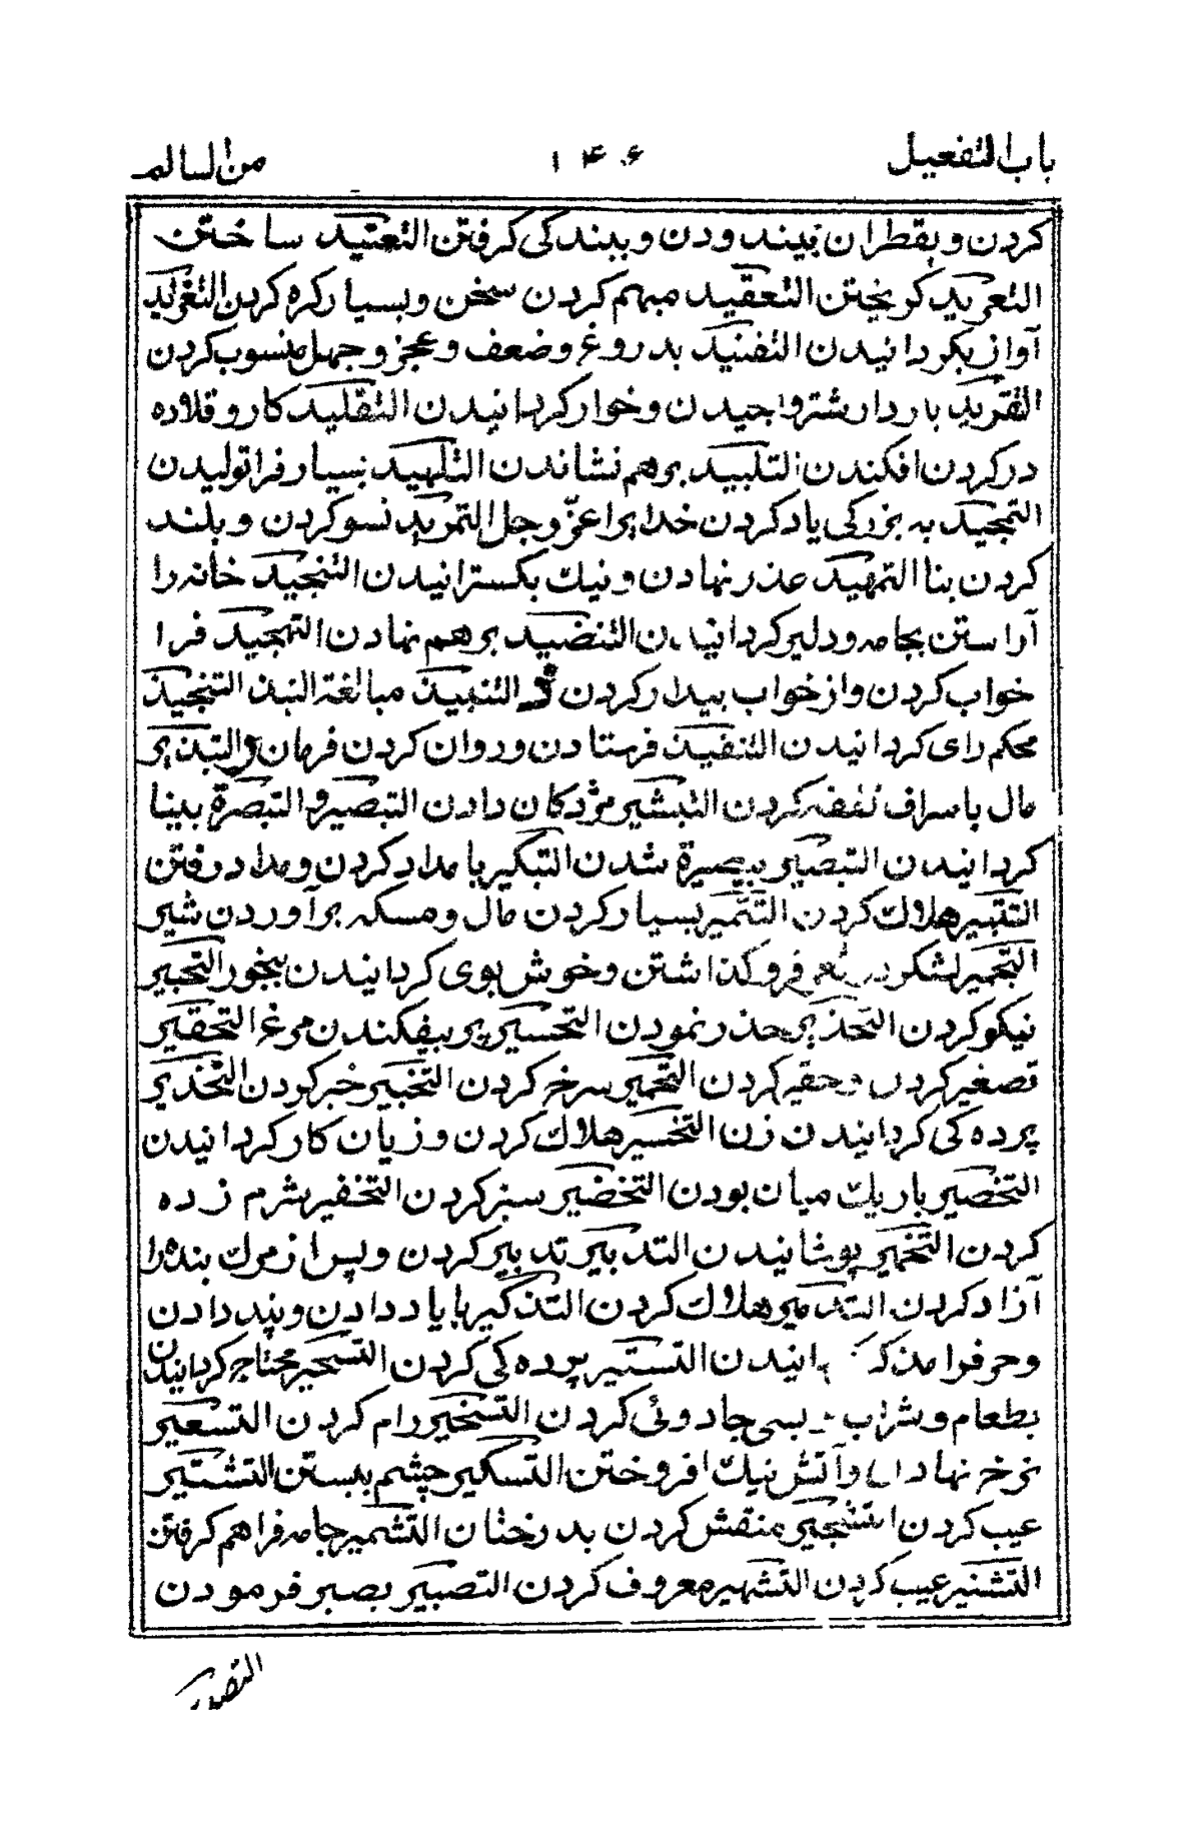 باب التفعیل ۱۴۶ من السالم
کردن و بقطران بیندودن و ببندکی کرفتن التعتید ساختن
التعرید کریختن التعقید مبهم کردن سخن و بسیار کره کردن التغرید
آواز بکردانیدن التفنید بدروغ و ضعف و عجز و جهل منسوب کردن
التقرید بار دار شتر واجیدن و خوار کردانیدن التقلید کار و قلاده
در کردن افکندن التلبید برهم نشاندن التلهید بسیار فرا تولیدن
التمجید به بزرکی یاد کردن خدایرا عزّ و جل التمرید نسو کردن و بلند
کردن بنا التمهید عذر نهادن و نیك بکسترانیدن التنجید خانه را
آراستن بجامه و دلیر کردانیدن التنضید برهم نهادن التهجید فرا
خواب کردن و از خواب بیدار کردن التنبیذ مبالغة النبذ التنجیذ
محکم رای کردانیدن التنفیذ فرستادن و روان کردن فرمان و التبذیر
مال باسراف نفقه کردن التبشیر مژدکان دادن التبصیر و التبصرة بینا
کردانیدن التبصیر ببصیرة شدن التبکیر بامداد کردن و بامداد رفتن
التتبیر هلاك کردن التثمیر بسیار کردن مال و مسکه برآوردن شیر
التجمیر لشکر فرو کذاشتن و خوش بوی کردانیدن ببخور التحبیر
نیکو کردن التحذیر حذر نمودن التحسیر پر بیفکندن مرغ التحقیر
تصغیر کردن و حقیر کردن التحمیر سرخ کردن التخبیر خبر کردن التخدیر
پرده کی کردانیدن زن التخسیر هلاك کردن و زیان کار کردانیدن
التخصیر باریك میان بودن التخضیر سبز کردن التخفیر شرم زده
کردن التخمیر پوشانیدن التدبیر تدبیر کردن و پس از مرك بنده را
آزاد کردن التدمیر هلاك کردن التذکیر بایاد دادن و پند دادن
و حرفرا مذکر انیدن التستیر پرده کی کردن التسحیر محتاج کردانیدن
بطعام و شراب بسی جادوئی کردن التسخیر رام کردن التسعیر
نرخ نهادن و آتش نیك افروختن التسکیر چشم ببستن التشتیر
عیب کردن التشجیر منقش کردن بدرختان التشمیر جامه فراهم کرفتن
التشنیر عیب کردن التشهیر معروف کردن التصبیر بصبر فرمودن